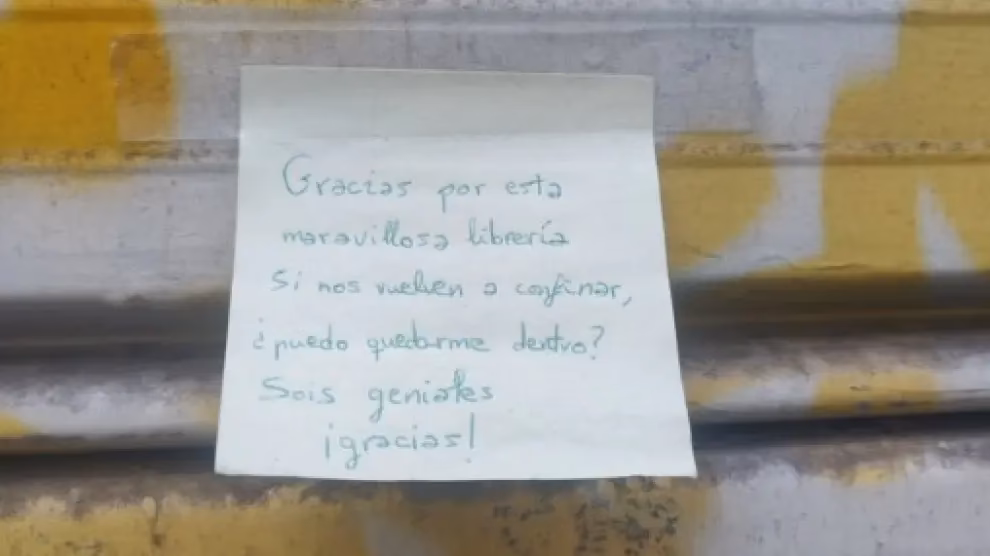 Gracias por esta
maravillosa librería
Si nos vuelven a confinar,
¿puedo quedarme dentro?
Sois geniales
¡gracias!